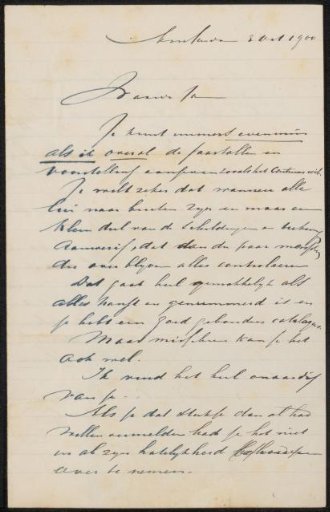 3 Oct 1900
Je kunt immers evenmin
als ik overal de jaartallen en
voorstelling
Je weet zeker dat wanneer alle
naar buiten zijn en maar een
klein deel van de schilderijen en
aanwezig, dat dan de paar
die overblijven alles controleeren
Dat gaat heel gemakkelijk als
alles hangt en genummerd is en
je hebt een goed gebonden catalogus
Maar misschien kan je het
ook wel.
Ik vind het heel onaardig
van je
Als je dat stukje dan al had
willen vermelden had je het niet
in al zijn hatelijkheid
over te nemen.